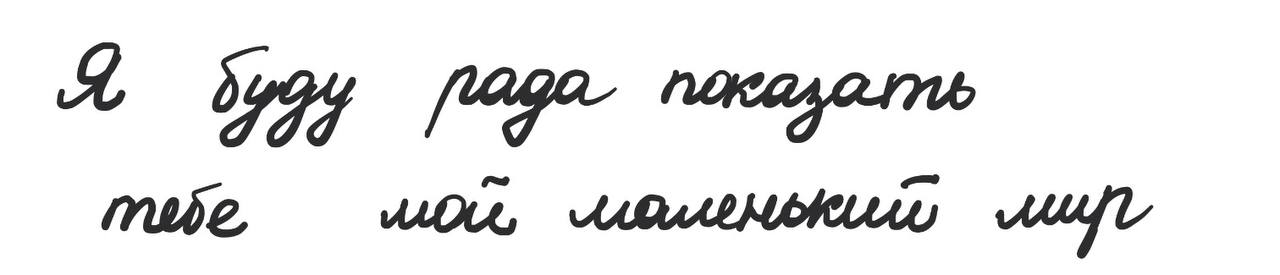 Я буду рада показать
тебе мой маленький мир